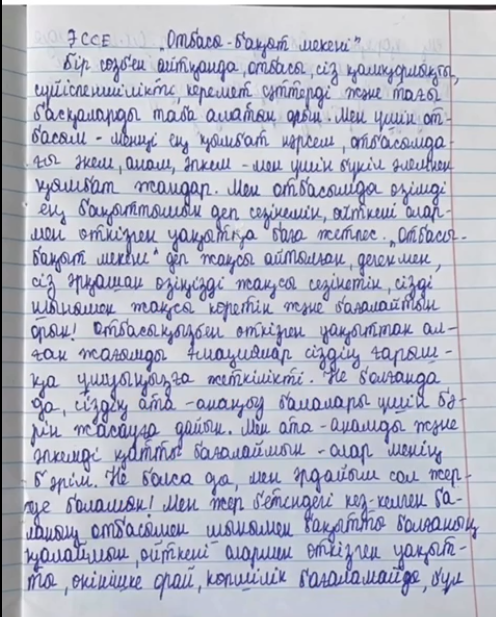 ЭССЕ „Отбасы-бақыт мекені"
Бір сөзбен айтқанда, отбасы, сіз қамқорлықты,
сүйіспеншілікті, керемет сәттерді және тағы
басқаларды таба алатын орын. Мен үшін от-
басым - менің ең қымбат нәрсем, отбасымда-
ғы әкем, анам, әпкем - мен үшін бүкіл әлемнен
қымбат жандар. Мен отбасымда өзімді
ең бақыттымын деп сезінемін, өйткені олар-
мен өткізген уақытқа баға жетпес. „Отбасы-
бақыт мекені" деп жақсы айтылған, дегенмен,
сіз әрқашан өзіңізді жақсы сезінетін, сізді
шынымен жақсы көретін және бағалайтын
орын! Отбасыңызбен өткізген уақыттан ал-
ған жағымды эмоциялар сіздің ғарыш-
қа ұшуыңызға жеткілікті. Не болғанда
да, сіздің ата-анаңыз балалары үшін бә-
рін жасауға дайын. Мен ата-анамды және
әпкемді қатты бағалаймын - олар менің
бәрім. Не болса да, мен әрдайым сол жер-
де боламын! Мен жер бетіндегі кез-келген ба-
ланың отбасымен шынымен бақытты болғанын
қалаймын, өйткені олармен өткізген уақыт-
ты, өкінішке орай, көпшілік бағаламайды, бұл